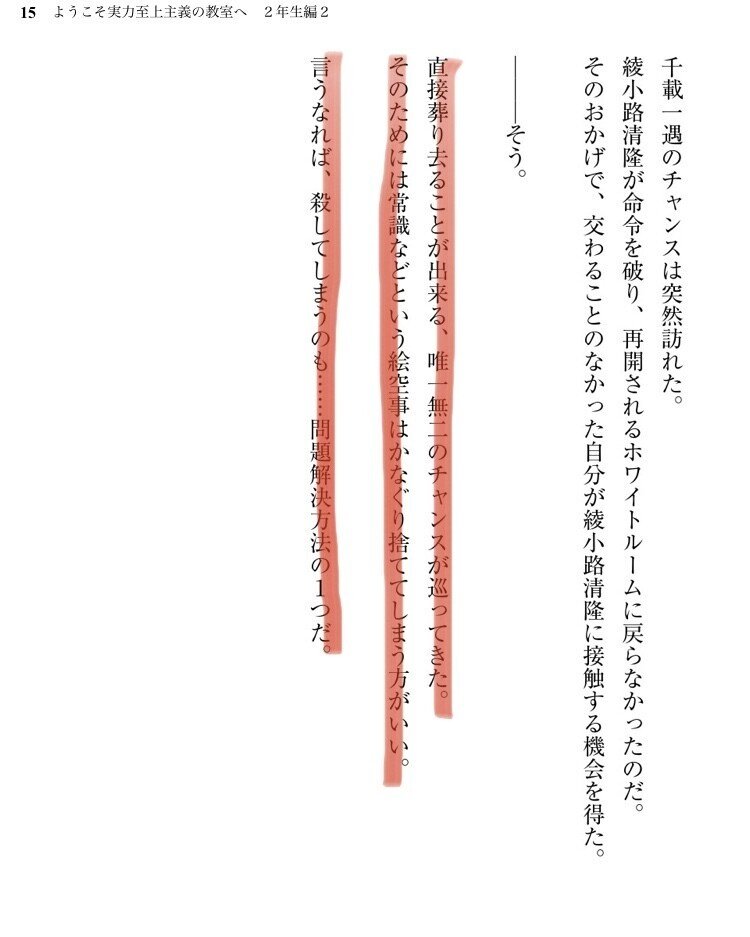 15 ようこそ実力至上主義の教室へ 2年生編2
千載一遇のチャンスは突然訪れた。
綾小路清隆が命令を破り、再開されるホワイトルームに戻らなかったのだ。
そのおかげで、交わることのなかった自分が綾小路清隆に接触する機会を得た。
――そう。
直接葬り去ることが出来る、唯一無二のチャンスが巡ってきた。
そのためには常識などという絵空事はかなぐり捨ててしまう方がいい。
言うなれば、殺してしまうのも……問題解決方法の1つだ。